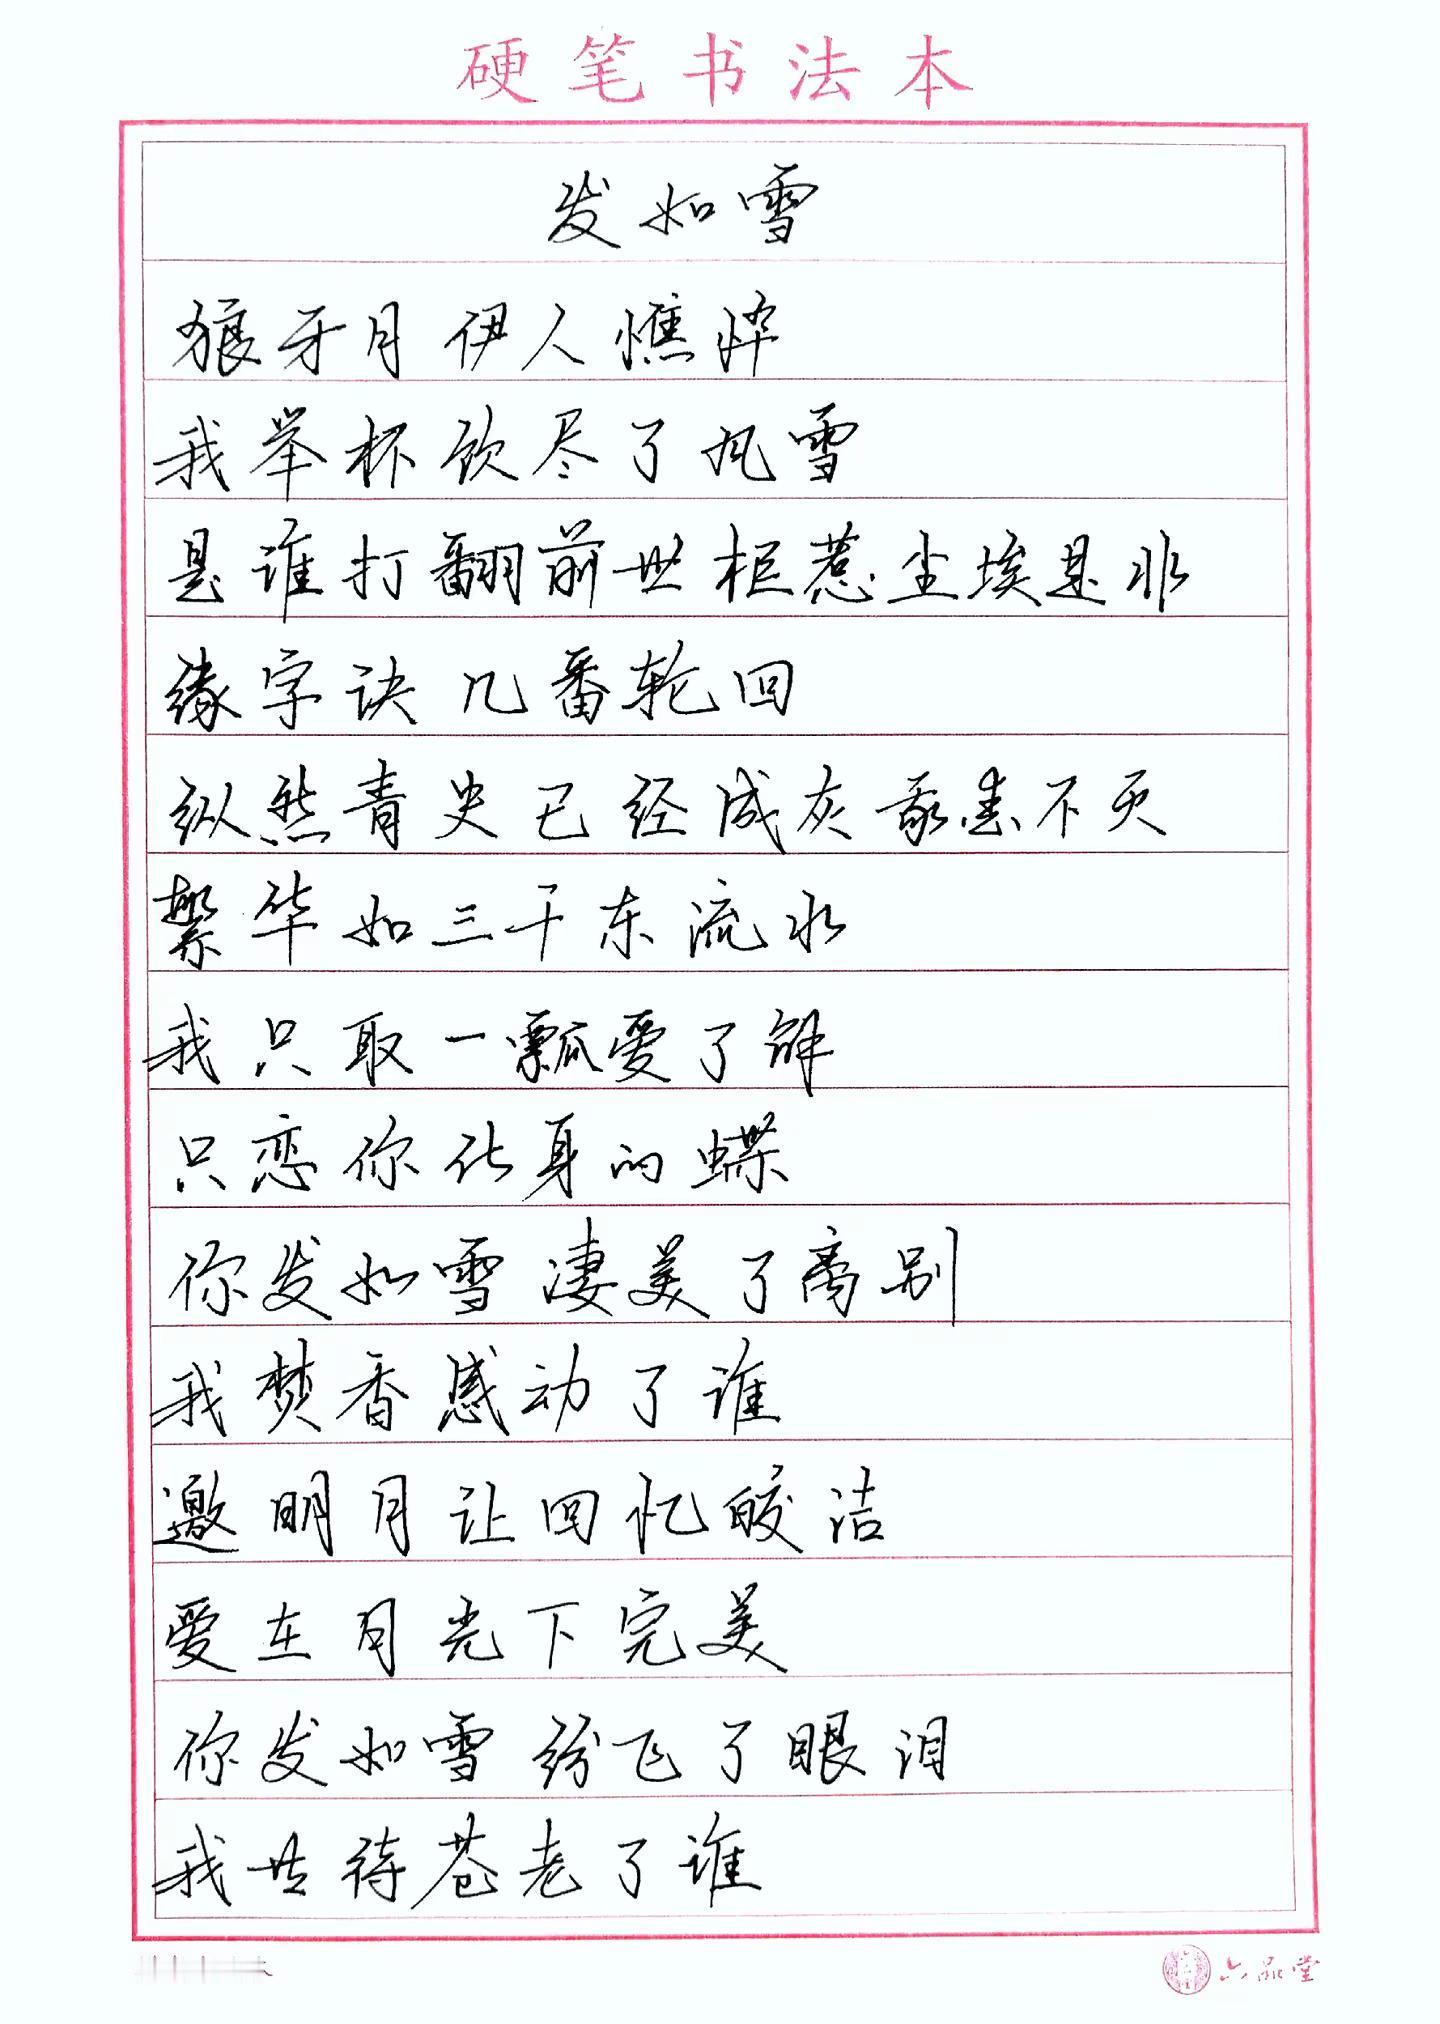 硬笔书法本
发如雪
狼牙月 伊人憔悴
我举杯饮尽了风雪
是谁打翻前世柜惹尘埃是非
缘字诀 几番轮回
纵然青史已经成灰 我爱不灭
繁华如三千东流水
我只取一瓢爱了解
只恋你化身的蝶
你发如雪 凄美了离别
我焚香感动了谁
邀明月让回忆皎洁
爱在月光下完美
你发如雪 纷飞了眼泪
我等待苍老了谁
六品堂